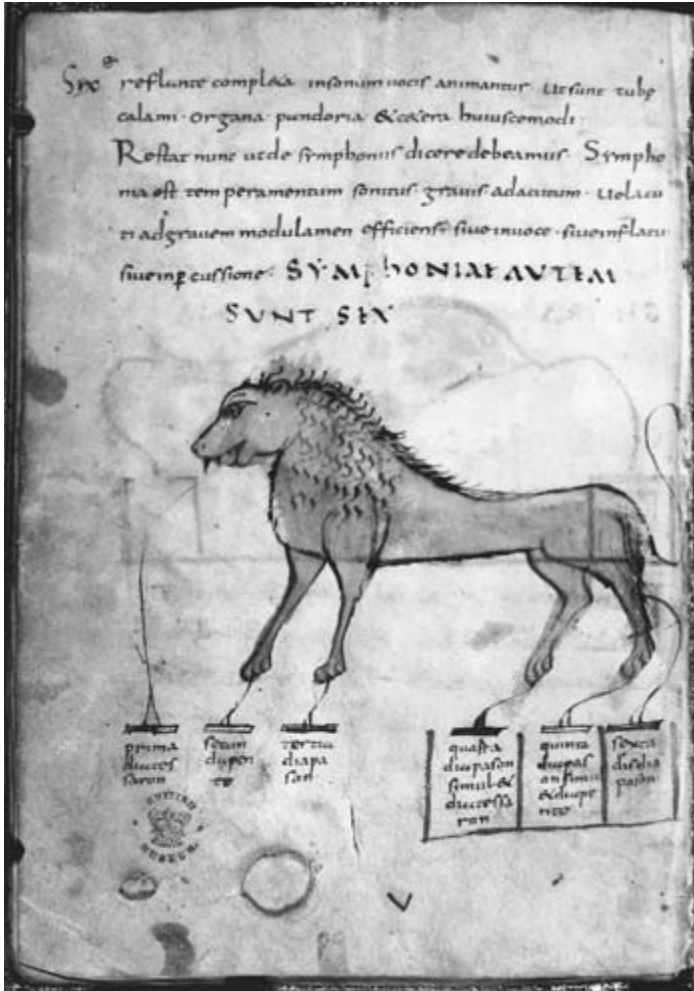 reflunte complexa insonum vocis animantur. Ut sunt tubę
calami. organa pandoria & cetera huiuscemodi.
Restat nunc ut de symphoniis dicere debeamus. Sympho
nia est temperamentum sonitus gravis ad acutum. vel acu
ti ad gravem modulamen efficiens. sive in voce. sive in flatu
sive in percussione. SYMPHONIAE AUTEM
SUNT SEX
prima
diates
saron
secun
diapen
te
tertia
diapa
son
quarta
diapason
simul &
diatessa
ron
quinta
diapas
on simul
& diape
nte
sexta
disdia
pason
BRITISH
MUSEUM